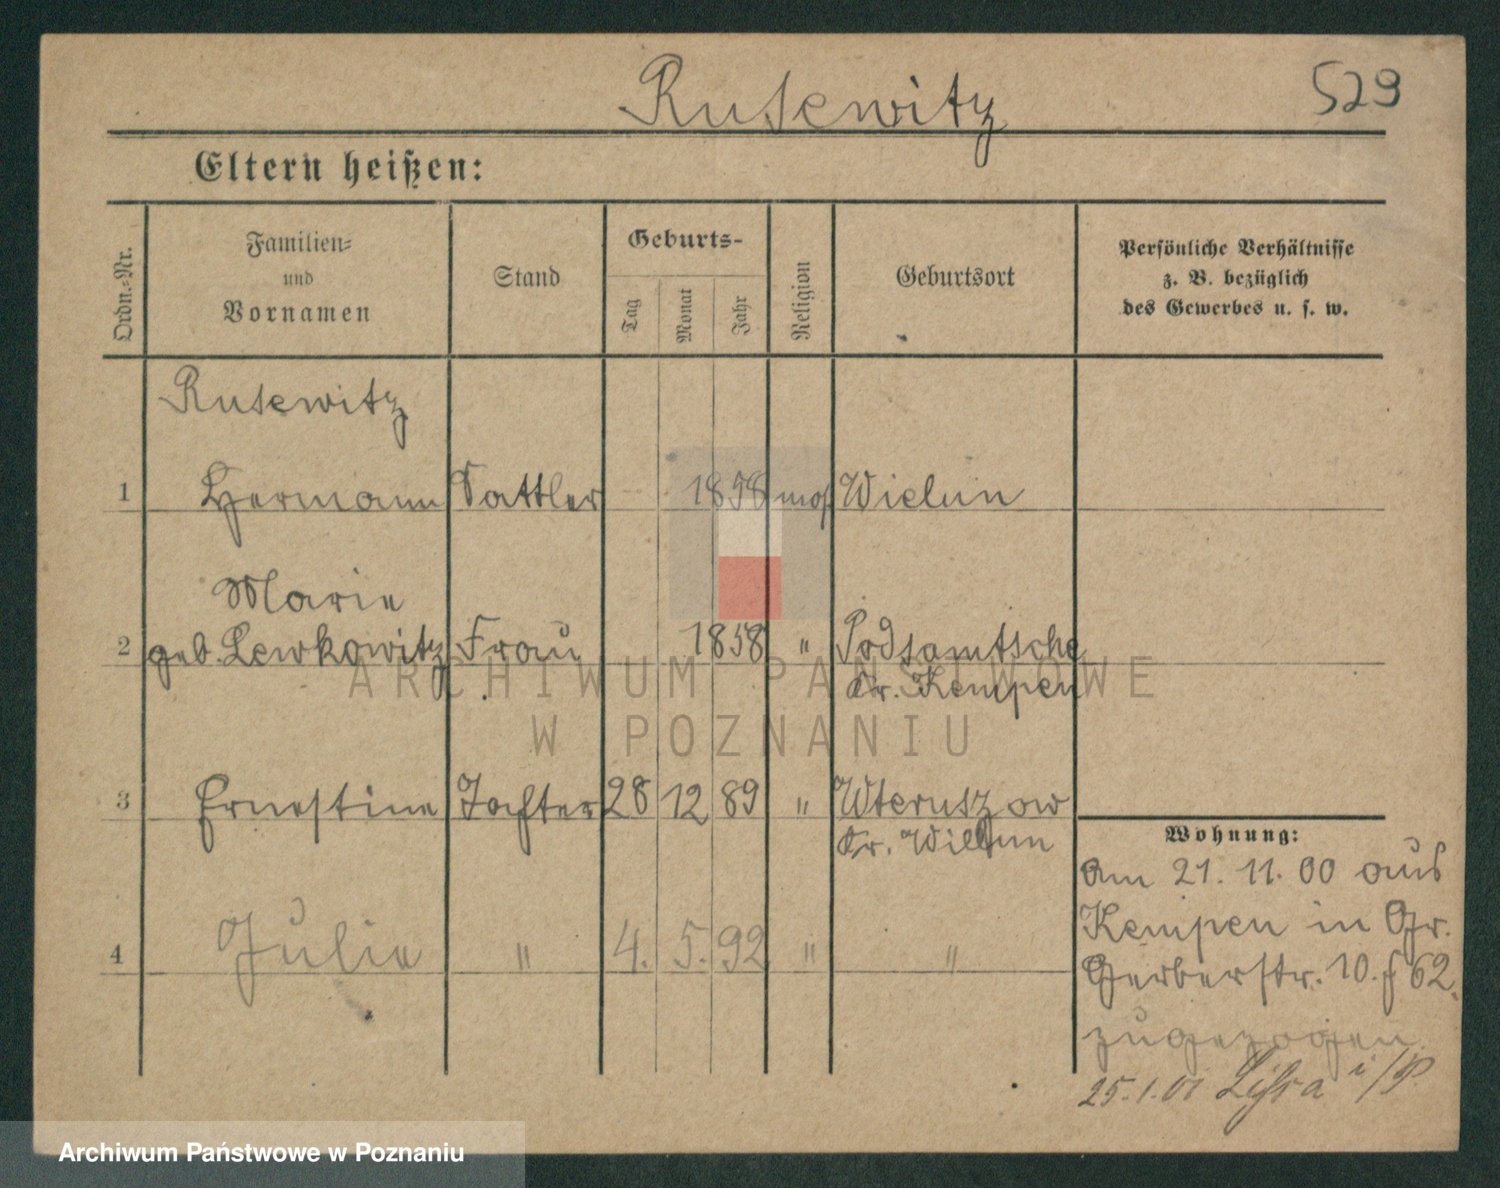 Rusewitz
529
Eltern heißen:
Ordn.-Nr.
Familien-
und
Vornamen
Stand
Geburts-
Tag
Monat
Jahr
Religion
Geburtsort
Persönliche Verhältnisse
z. B. bezüglich
des Gewerbes u. s. w.
Rusewitz
1 Hermann Sattler 1858 mos Wielun
Marie
2 geb. Lewkowitz Frau 1858 " Podsamtsche
Kr. Kempen
3 Ernestine Tochter 28 12 89 " Wieruszow
Kr. Wielun
4 Julie " 4. 5. 92 " "
Wohnung:
Am 21. 11. 00 aus
Kempen in Gr.
Gerberstr. 10. f 62.
zugezogen
25.1.01 Lissa i/P.
ARCHIWUM PAŃSTWOWE
W POZNANIU
Archiwum Państwowe w Poznaniu